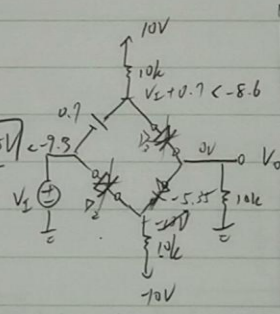 10V
10k
V_I + 0.7 < -8.6
0.7
5V
< -9.3
D_2
0V
V_o
V_I
-5.35
10k
-10V
10k
-10V